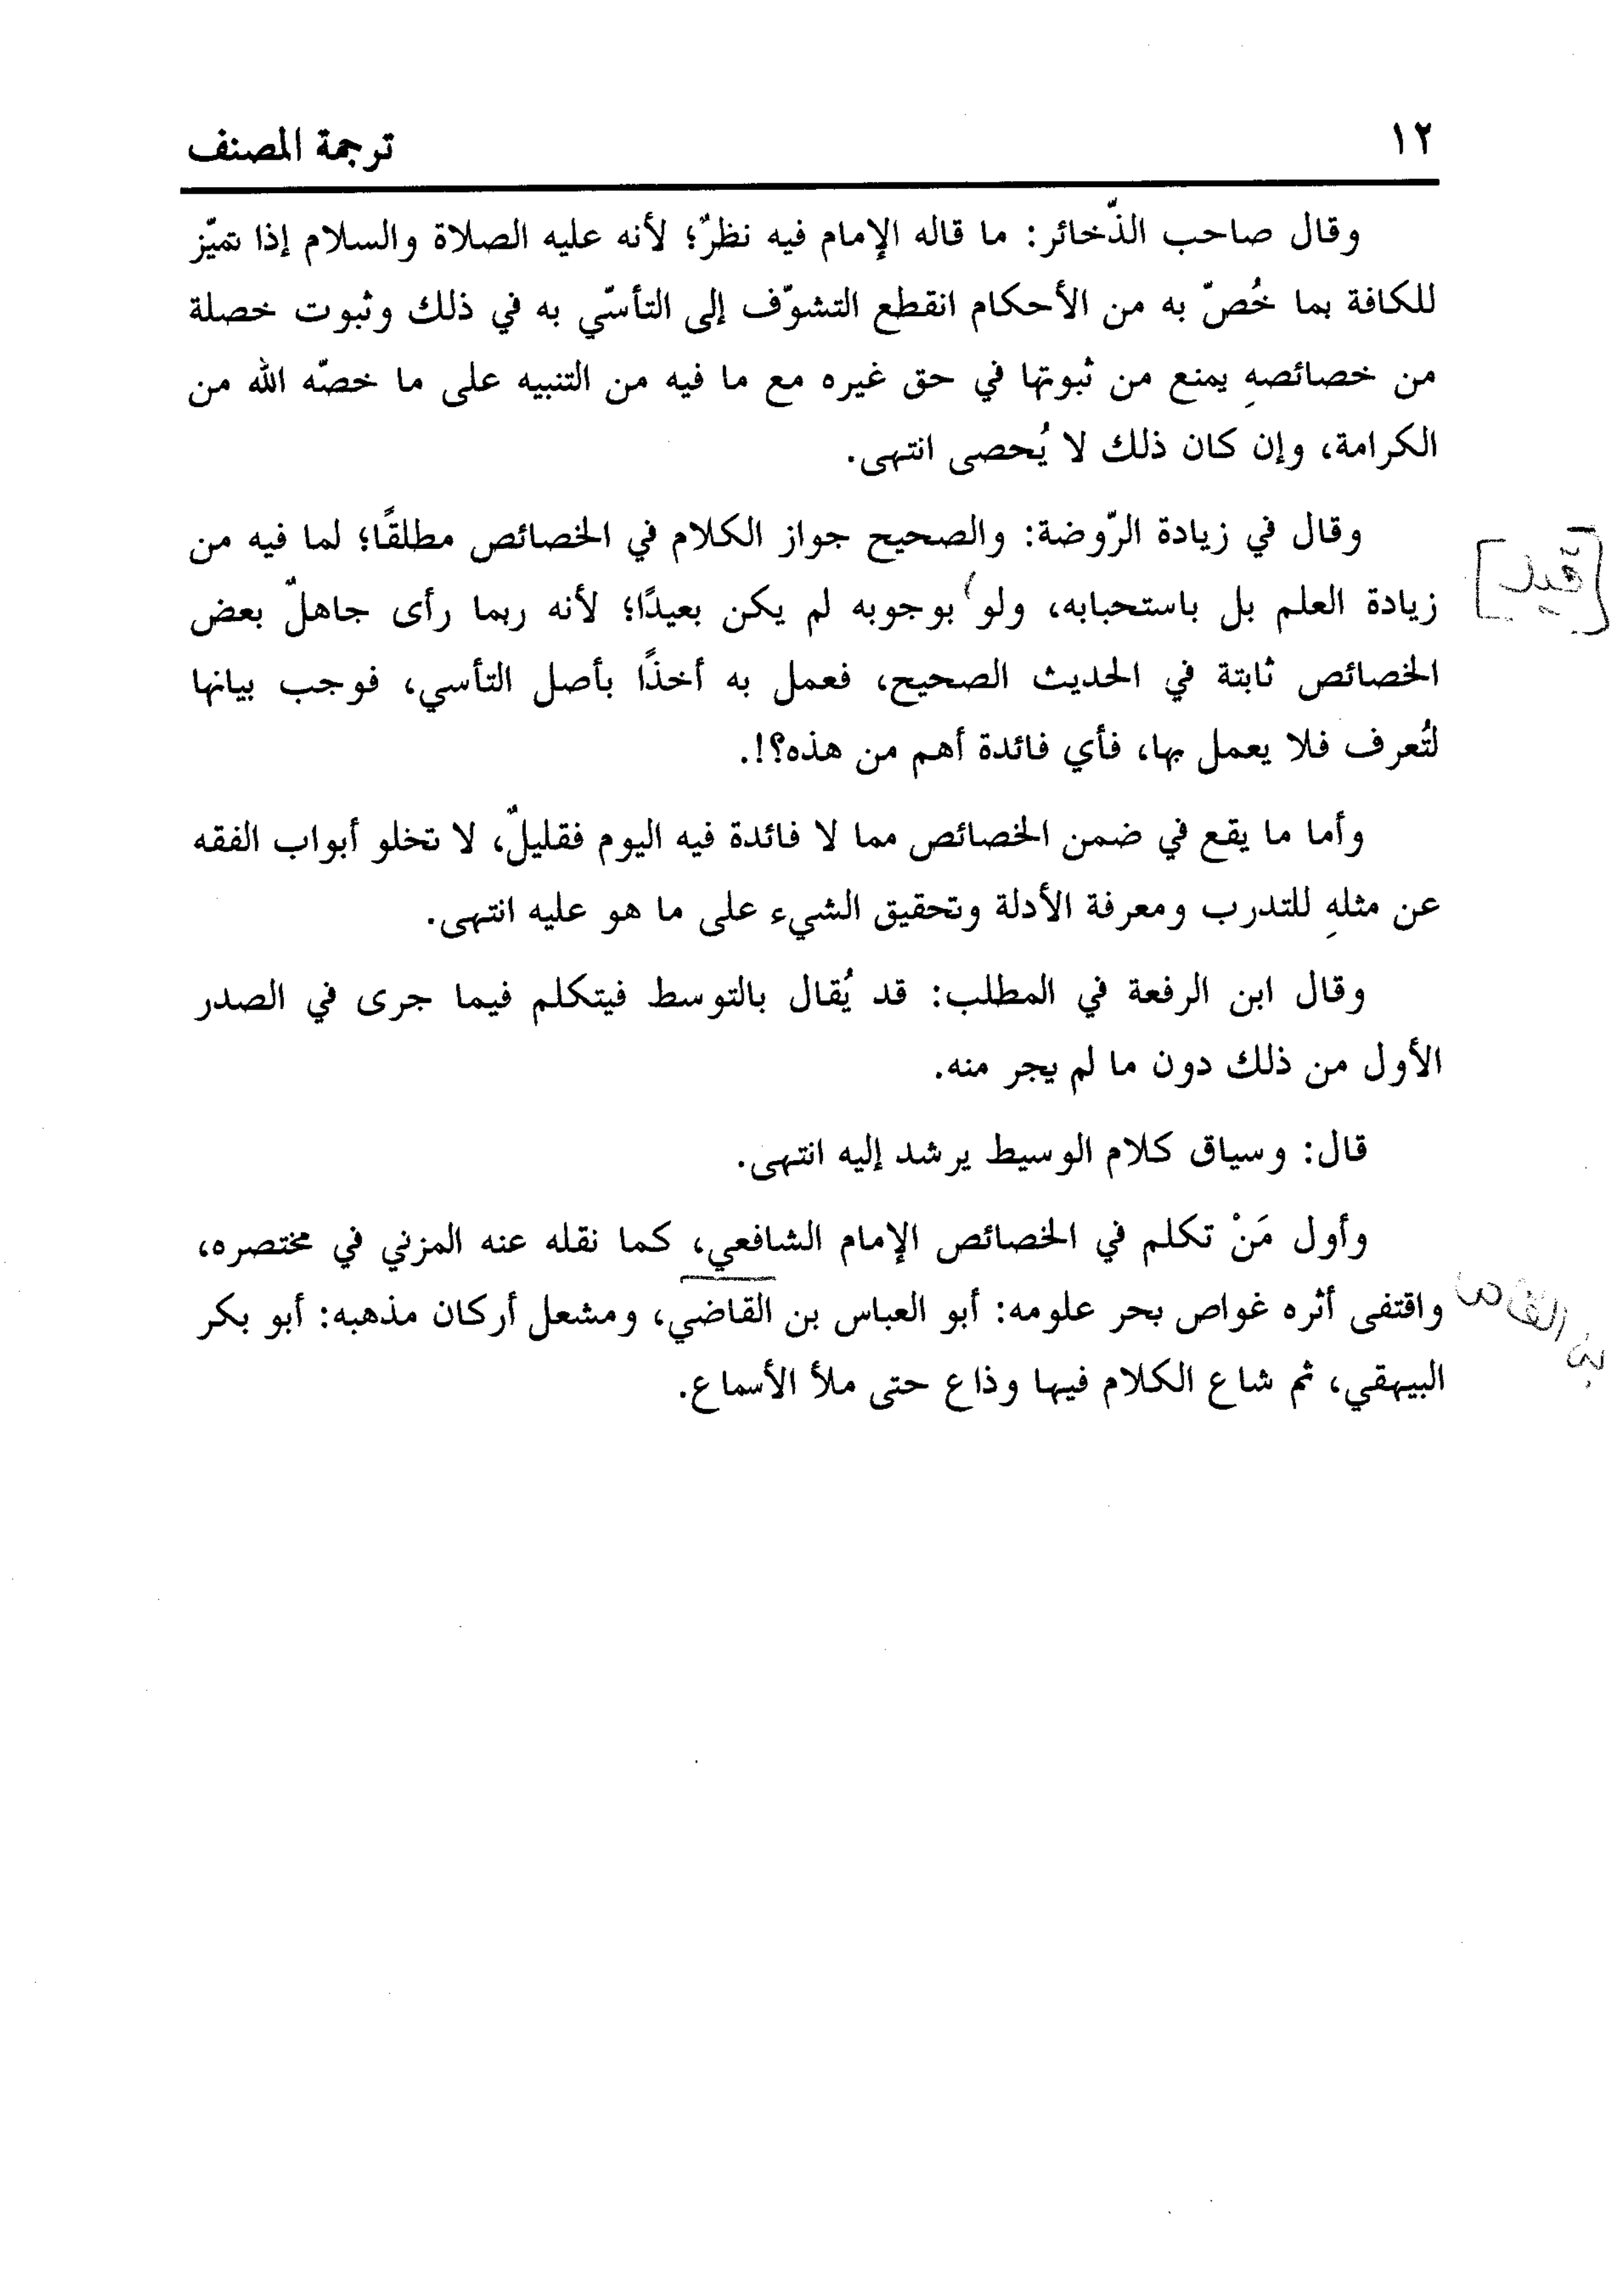 ١٢
ترجمة المصنف
وقال صاحب الذّخائر: ما قاله الإمام فيه نظرٌ؛ لأنه عليه الصلاة والسلام إذا تميّز
للكافة بما خُصّ به من الأحكام انقطع التشوّف إلى التأسّي به في ذلك وثبوت خصلة
من خصائصهِ يمنع من ثبوتها في حق غيره مع ما فيه من التنبيه على ما خصّه الله من
الكرامة، وإن كان ذلك لا يُحصى انتهى.
وقال في زيادة الرّوضة: والصحيح جواز الكلام في الخصائص مطلقًا؛ لما فيه من
[قيل]
زيادة العلم بل باستحبابه، ولو بوجوبه لم يكن بعيدًا؛ لأنه ربما رأى جاهلٌ بعض
الخصائص ثابتة في الحديث الصحيح، فعمل به أخذًا بأصل التأسي، فوجب بيانها
لتُعرف فلا يعمل بها، فأي فائدة أهم من هذه؟!.
وأما ما يقع في ضمن الخصائص مما لا فائدة فيه اليوم فقليلٌ، لا تخلو أبواب الفقه
عن مثلهِ للتدرب ومعرفة الأدلة وتحقيق الشيء على ما هو عليه انتهى.
وقال ابن الرفعة في المطلب: قد يُقال بالتوسط فيتكلم فيما جرى في الصدر
الأول من ذلك دون ما لم يجر منه.
قال: وسياق كلام الوسيط يرشد إليه انتهى.
وأول مَنْ تكلم في الخصائص الإمام الشافعي، كما نقله عنه المزني في مختصره،
واقتفى أثره غواص بحر علومه: أبو العباس بن القاضي، ومشعل أركان مذهبه: أبو بكر
بن القاص
البيهقي، ثم شاع الكلام فيها وذاع حتى ملأ الأسماع.